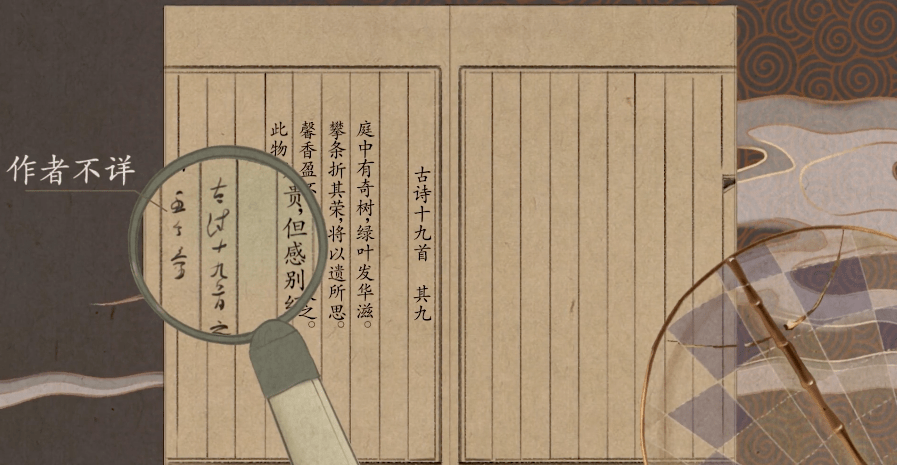 作者不详
古诗十九首 其九
庭中有奇树,绿叶发华滋。
攀条折其荣,将以遗所思。
馨香盈 之。
此物 贵,但感别
古诗十九首之